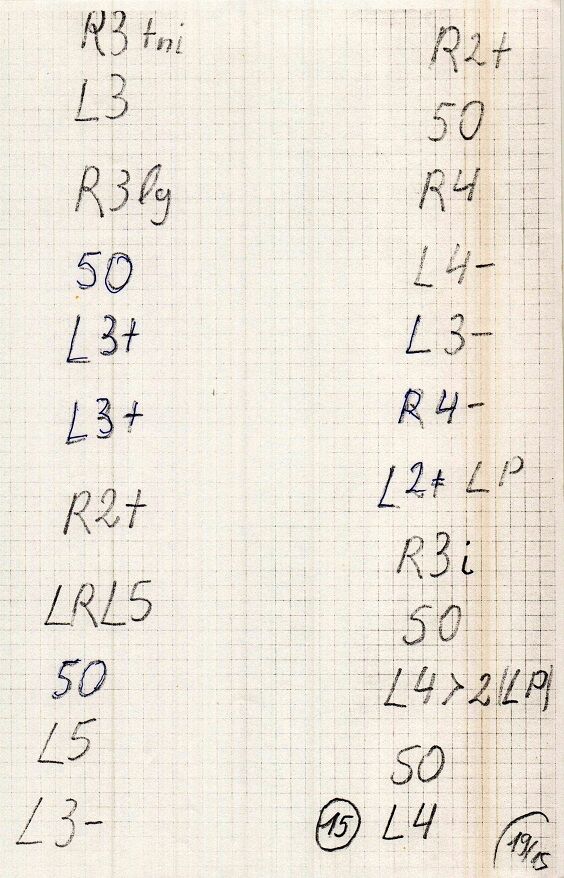 R3+ni
L3
R3lg
50
L3+
L3+
R2+
LRL5
50
L5
L3-
R2+
50
R4
L4-
L3-
R4-
L2+ LP
R3i
50
L4>2(LP)
50
15 L4
19/15